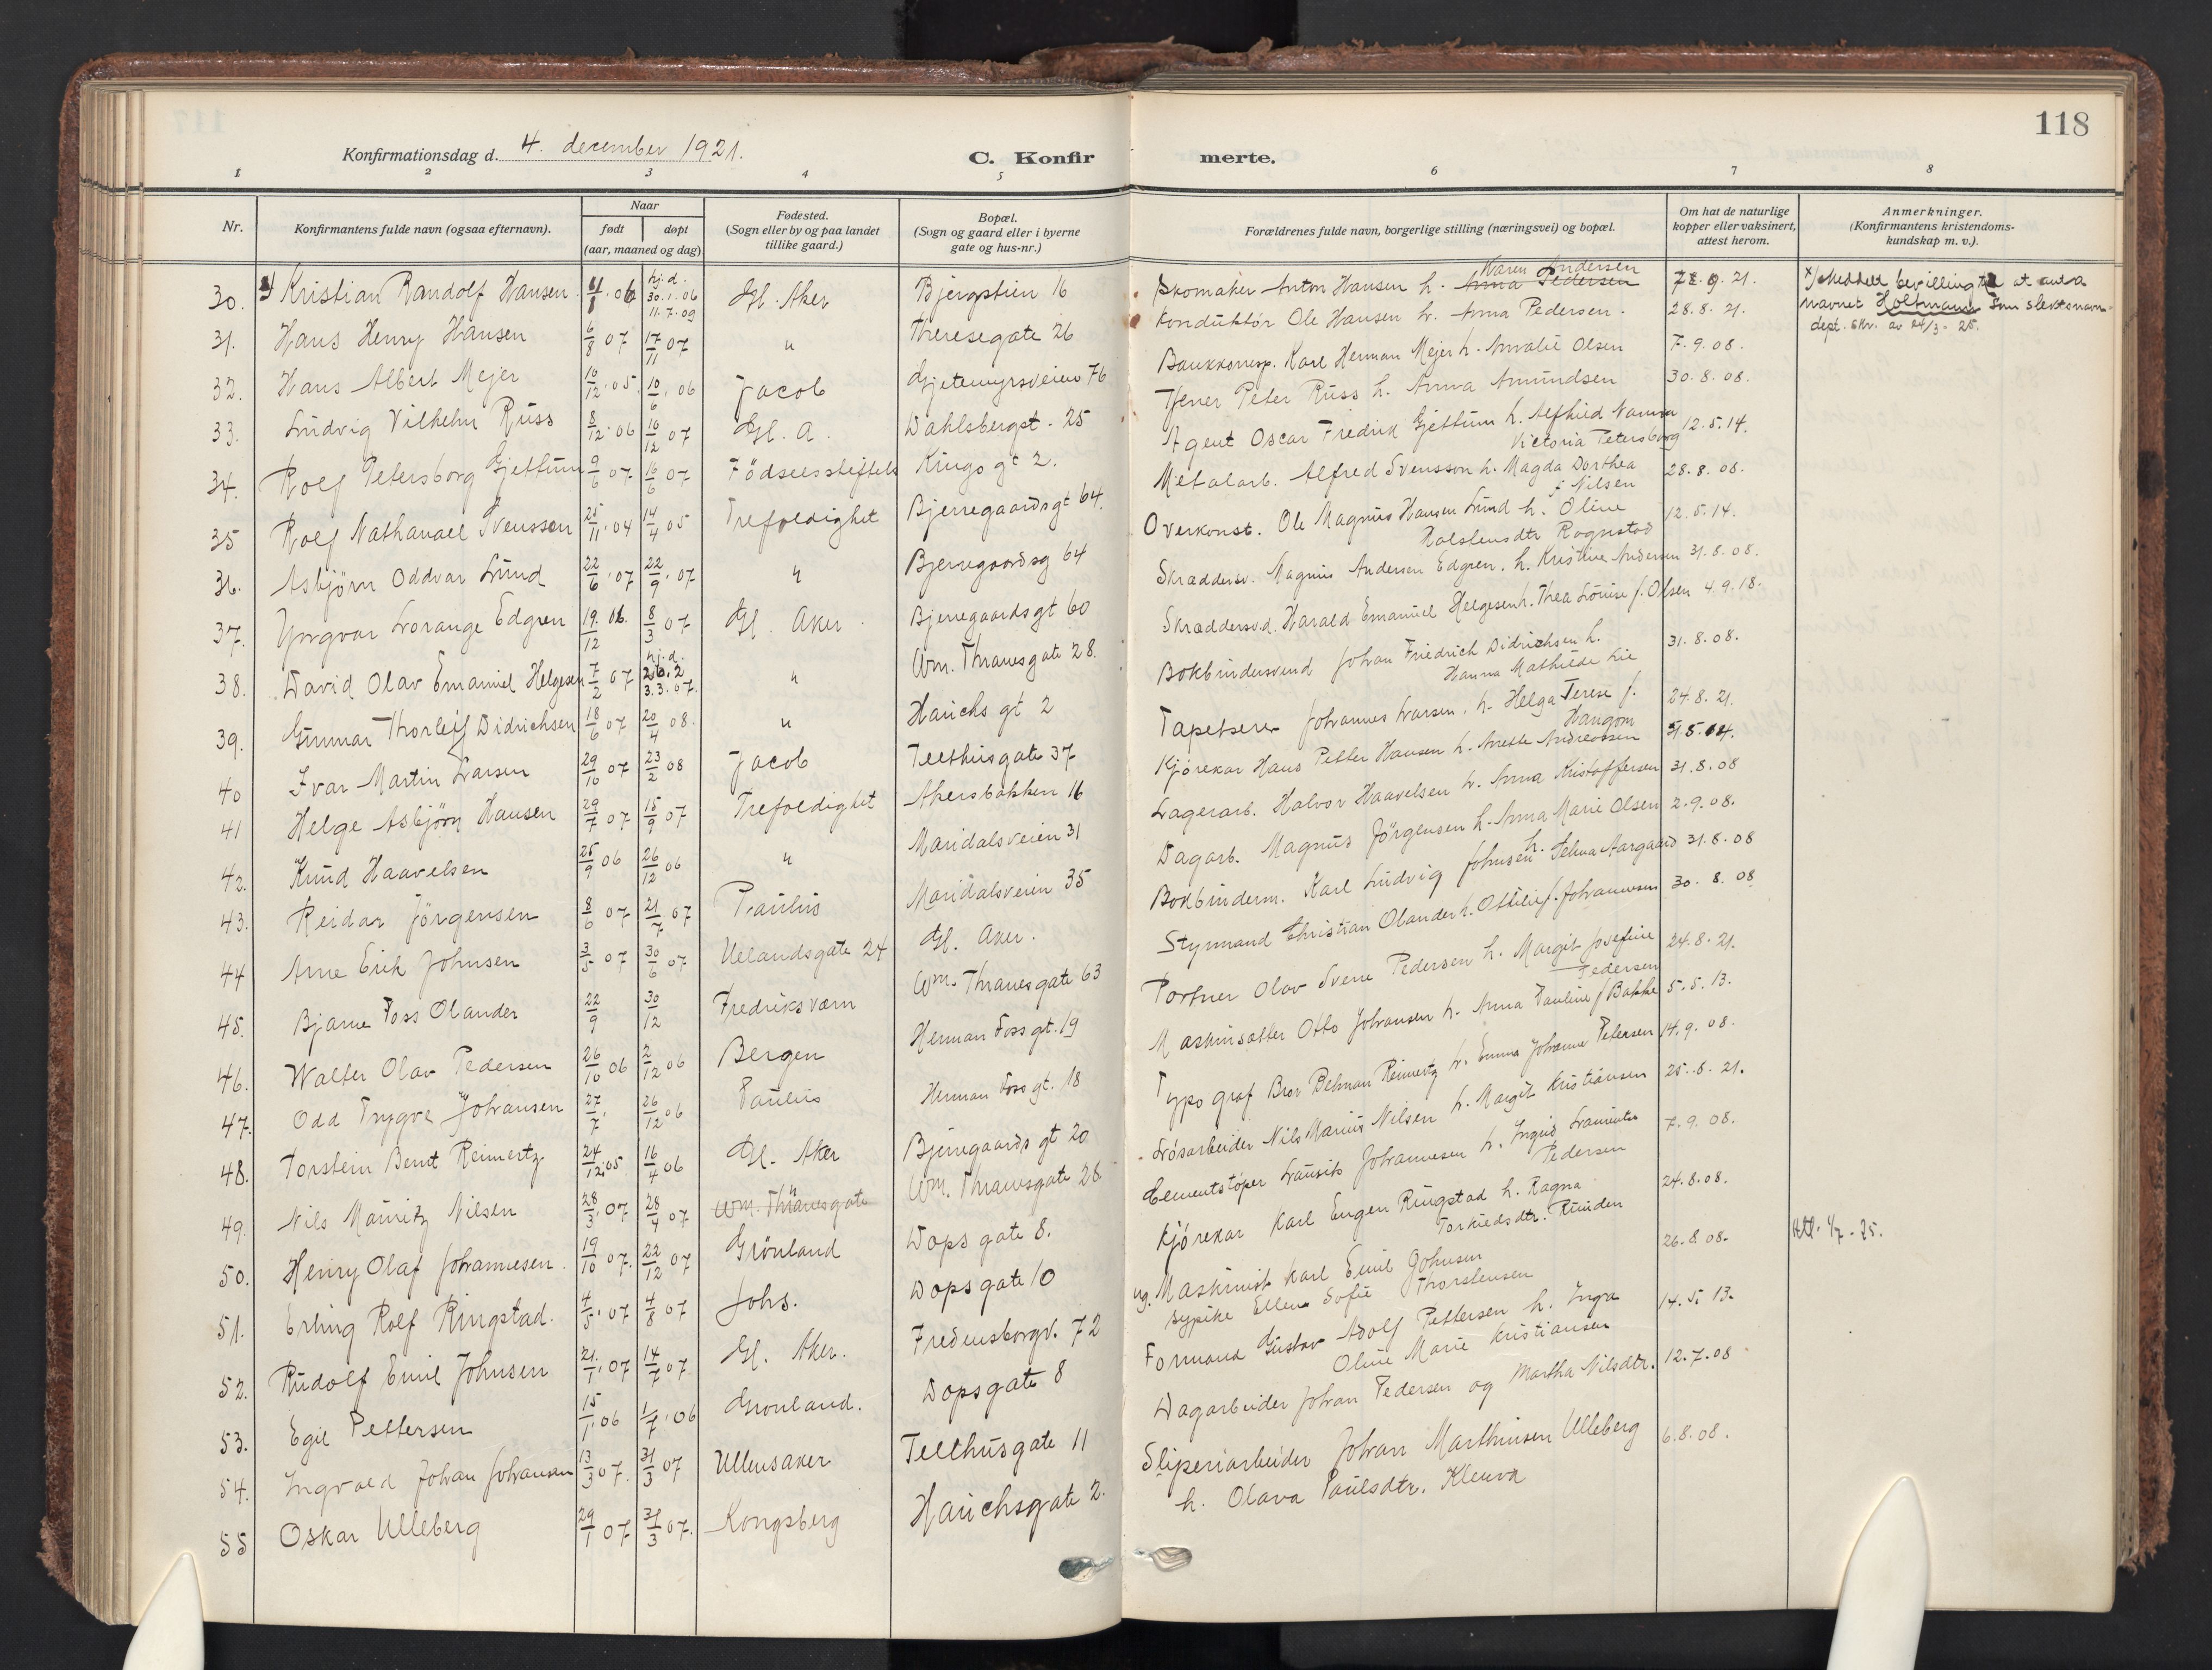 118
Konfirmationsdag d. 4. december 1921. C. Konfirmerte.
1 2 3 4 5 6 7 8
Nr. Konfirmantens fulde navn (ogsaa efternavn). Naar født døpt (aar, maaned og dag) Fødested. (Sogn eller by og paa landet tillike gaard.) Bopæl. (Sogn og gaard eller i byerne gate og hus-nr.) Forældrenes fulde navn, borgerlige stilling (næringsvei) og bopæl. Om hat de naturlige kopper eller vaksinert, attest herom. Anmerkninger. (Konfirmantens kristendoms-kundskap m. v.).
30. Kristian Randolf Hansen hj.d. 30.1.06 11.7.09 Gl. Aker Bjergstien 16 Skomaker Anton Hansen h. Anna Pedersen Karen Andersen 9. 21. x/ Meddelt bevilling til at anta navnet Holtmann som slektsnavn dept. skr. av 24/3-25.
31. Hans Henry Hansen 6/8 07 17/11 07 " Theresegate 26 Konduktör Ole Hansen h. Anna Pedersen. 28.8.21.
32. Hans Albert Mejer 10/12.05. 10/6.06 Jacob Gjetemyrsveien 76 Bankkorresp. Karl Herman Mejer h. Amalie Olsen 7.9.08.
33. Ludvig Vilhelm Russ 8/12.06 16/12 07 Gl. A. Dahlsbergst. 25 Tjener Peter Russ h. Anna Amundsen 30.8.08.
34. Rolf Petersborg Gjettum 9/6 07 16/6 07 Födselsstiftels Kingos gt 2. Agent Oscar Fredrik Gjettum h. Alfhild Nanna Victoria Petersborg 12.5.14.
35 Rolf Nathanael Svensson 25/11.04 14/4 05 Trefoldighet Bjerregaardsgt 64. Metalarb. Alfred Svensson h. Magda Dorthea f. Nilsen 28.8.08.
36. Asbjörn Oddvar Lund 22/6.07 22/9.07 " Bjerregaardsg 64 Overkonst. Ole Magnus Hansen Lund h. Oline Halstensdtr Rognstad 12.5.14.
37. Yngvar Lorange Edgren 19/12.06. 8/3 07 Gl. Aker. Bjerregaardsgt 60 Skræddersv. Magnus Andersen Edgren. h. Kristine Andersen 31.8.08.
38. David Olav Emanuel Helgesen 7/2 07 hj.d. 26.2 3.3.07. " Wm. Thranesgate 28. Skræddersvd. Harald Emanuel Helgesen h. Thea Louise f. Olsen 4.9.18.
39. Gunnar Thorleif Didrichsen 18/6 07 20/4 08. " Hauchs gt 2 Bokbindersvend Johan Friedrich Didrichsen h. Hanna Mathilde Lie 31.8.08.
40 Ivar Martin Larsen 29/10 07 23/2 08 Jacob Telthusgate 37 Tapetserer Johannes Larsen. h. Helga Terese f. Haugom 24.8.21.
41 Helge Asbjörn Hansen 29/7 07 15/9 07 Trefoldighet Akersbakken 16 Kjörekar Hans Petter Hansen h. Anette Andreassen 31.5.14.
42. Knud Haavelsen 25/9 06 26/12 06 " Maridalsveien 31 Lagerarb. Halvor Haavelsen h. Anna Kristoffersen 31.8.08
43. Reidar Jörgensen 8/6 07 21/7 07 Paulus Maridalsveien 35 Dagarb. Magnus Jörgensen h. Anna Marie Olsen 2.9.08.
44 Arne Erik Johnsen 3/5 07 30/6 07 Uelandsgate 24 Gl. Aker. Bokbinderm. Karl Ludvig Johnsen h. Selma Aargaard 31.8.08
45. Bjarne Foss Olander 22/9 30/12 Fredriksværn Wm. Thranesgate 63 Styrmand Christian Olander h. Ottilie f. Johannesen 30.8.08
46. Walter Olav Pedersen 26/10 06 2/12 06 Bergen Herman Fossgt. 19 Portner Olav Sverre Pedersen h. Margit Josefine Pedersen 24.8.21.
47. Odd Trygve Johansen 27/7. 26/12 06 Paulus Herman Fossgt. 18 Maskinsetter Otto Johansen h. Anna Pauline f. Bakke 5.5.13.
48. Torstein Bernt Reimertz 24/12.05 16/4 06 Gl. Aker Bjerregaards gt 20 Typograf Bror Belman Reimertz h. Emma Johanne Petersen 14.9.08.
49. Nils Mauritz Nilsen 28/3.07 28/4 07 Wm. Thranesgate Wm. Thranesgate 28 Lösarbeider Nils Marius Nilsen h. Margit Kristiansen 25.8.21.
50. Henry Olaf Johannesen. 19/10 07. 22/12 07 Grönland Dops gate 8. Cementstöper Lauritz Johannesen h. Ingrid Laurentse Pedersen 7.9.08.
51. Erling Rolf Ringstad. 4/5.07 4/8 07 Johs. Dopsgate 10 Kjörekar Karl Eugen Ringstad h. Ragna Torkildsdtr. Ruuden 24.8.08.
52. Rudolf Emil Johnsen 21/1.07 14/7 07. Gl. Aker. Fredensborgv. 72 ug. Maskinist Karl Emil Johnsen sypike Ellen Sofie Thorstensen 26.8.08. Utl. 4/7-25.
53. Egil Pettersen 15/1.06 1/7.06 Gronland. Dopsgate 8 Formand Gustav Adolf Pettersen h. Inga Oline Marie Kristiansen 14.5.13.
54. Ingvald Johan Johansen 13/3 07. 31/3 07 Ullensaker Telthusgate 11 Dagarbeider Johan Pedersen og Martha Nilsdtr. 12.7.08
55 Oskar Ulleberg 29/1 07 31/3 07. Kongsberg Hauchsgate 2. Sliperiarbeider Johan Marthinsen Ulleberg h. Olava Paulsdtr. Kleuva 6.8.08.